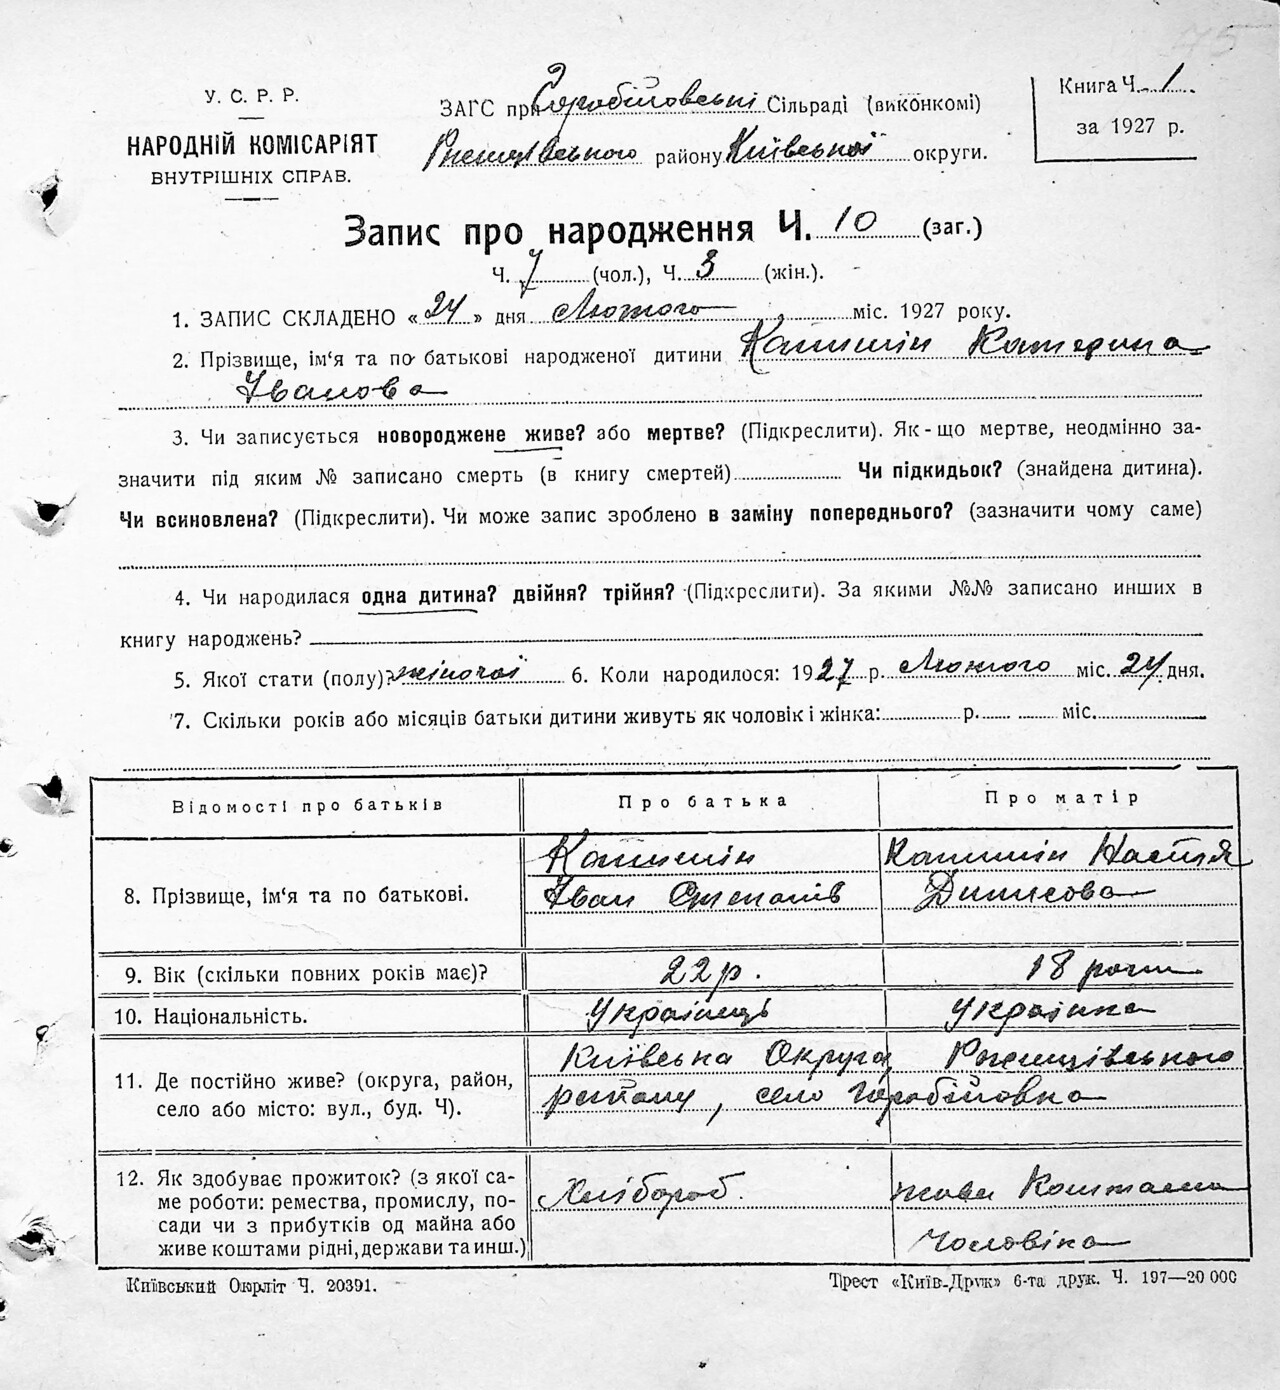 75
У. С. Р. Р.
НАРОДНІЙ КОМІСАРІЯТ
ВНУТРІШНІХ СПРАВ.
ЗАГС при Горобіївські Сільраді (виконкомі)
Ржищівського району Київської округи.
Книга Ч. 1
за 1927 р.
Запис про народження Ч. 10 (заг.)
Ч. 7 (чол.), Ч. 3 (жін.).
1. ЗАПИС СКЛАДЕНО «24» дня Лютого міс. 1927 року.
2. Прізвище, ім'я та по батькові народженої дитини Катерина
Іванова
3. Чи записується новороджене живе? або мертве? (Підкреслити). Як-що мертве, неодмінно за-
значити під яким № записано смерть (в книгу смертей) Чи підкидьок? (знайдена дитина).
Чи всиновлена? (Підкреслити). Чи може запис зроблено в заміну попереднього? (зазначити чому саме)
4. Чи народилася одна дитина? двійня? трійня? (Підкреслити). За якими №№ записано инших в
книгу народжень?
5. Якої стати (полу)? жіночої 6. Коли народилося: 1927 р. Лютого міс. 24 дня.
7. Скільки років або місяців батьки дитини живуть як чоловік і жінка: р. міс.
Відомості про батьків Про батька Про матір
8. Прізвище, ім'я та по батькові.
Іван Степанів
Настя
Динисова
9. Вік (скільки повних років має)? 22 р. 18 роки
10. Національність. Українець Українка
11. Де постійно живе? (округа, район,
село або місто: вул., буд. Ч).
Київська Округа Ржищівського
району, село Горобіївка
12. Як здобуває прожиток? (з якої са-
ме роботи: ремества, промислу, по-
сади чи з прибутків од майна або
живе коштами рідні, держави та инш.)
Хлібороб.
живе Коштами
Чоловіка
Київський Окрліт Ч. 20391.
Трест «Київ-Друк» 6-та друк. Ч. 197—20 000